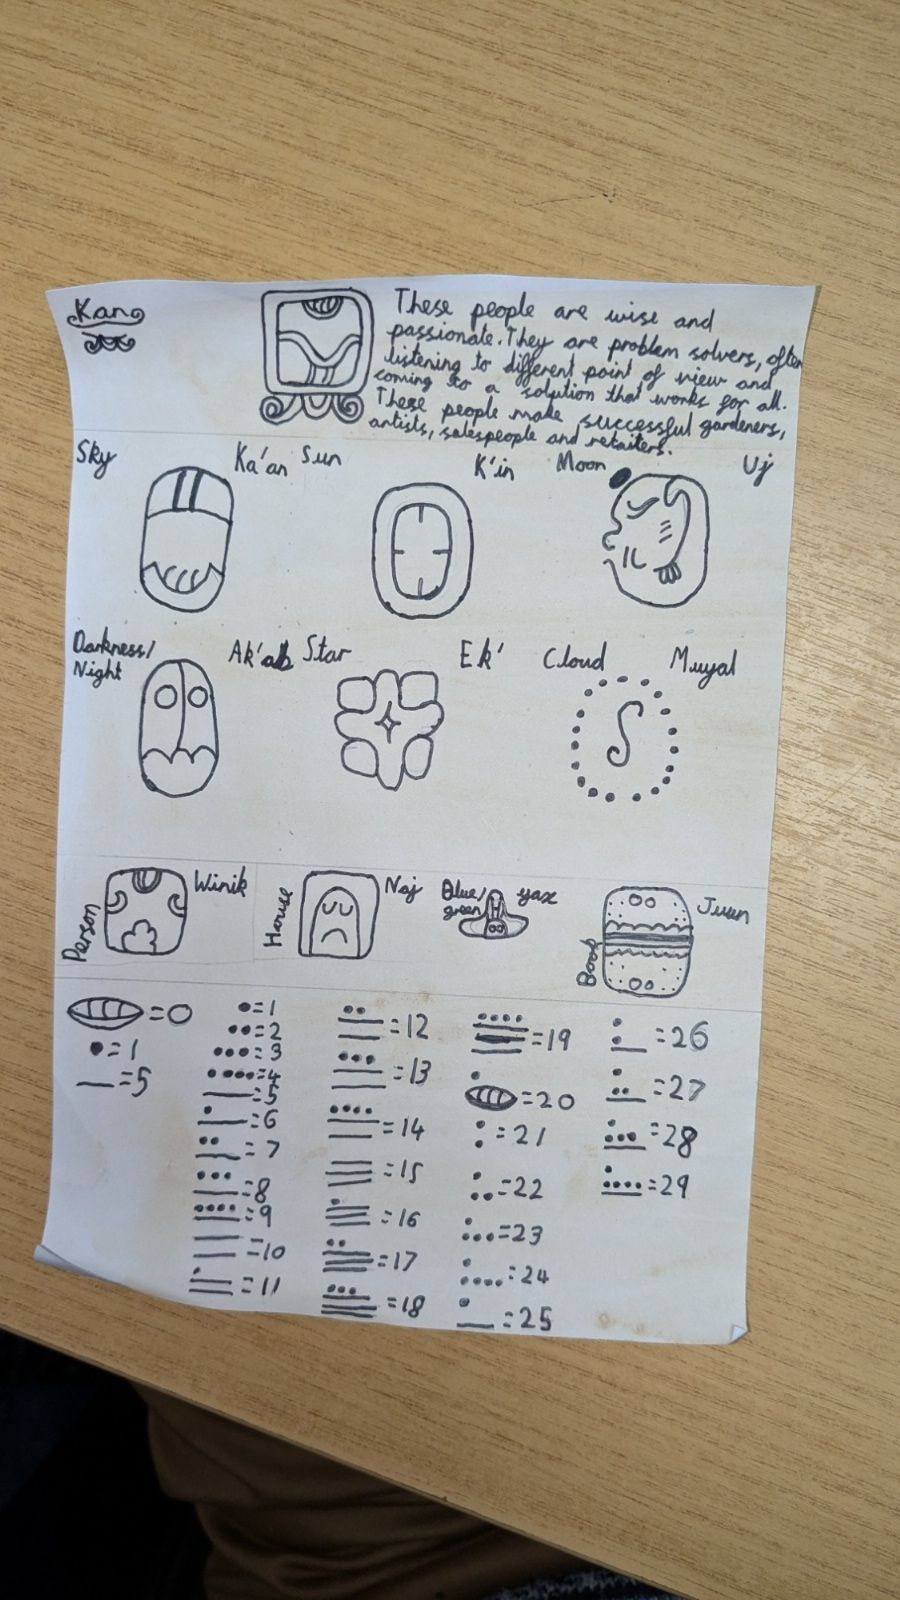 Kan
These people are wise and
passionate. They are problem solvers, often
listening to different point of view and
coming to a solution that works for all.
These people make successful gardeners,
artists, salespeople and retailers.
Sky Ka'an Sun K'in Moon Uj
Darkness/ Ak'ab Star Ek' Cloud Muyal
Night
Person Winik House Naj Blue/ yax Book Juun
green
=0
=1
=5
=1
=2
=3
=4
=5
=6
=7
=8
=9
=10
=11
=12
=13
=14
=15
=16
=17
=18
=19
=20
=21
=22
=23
=24
=25
=26
=27
=28
=29